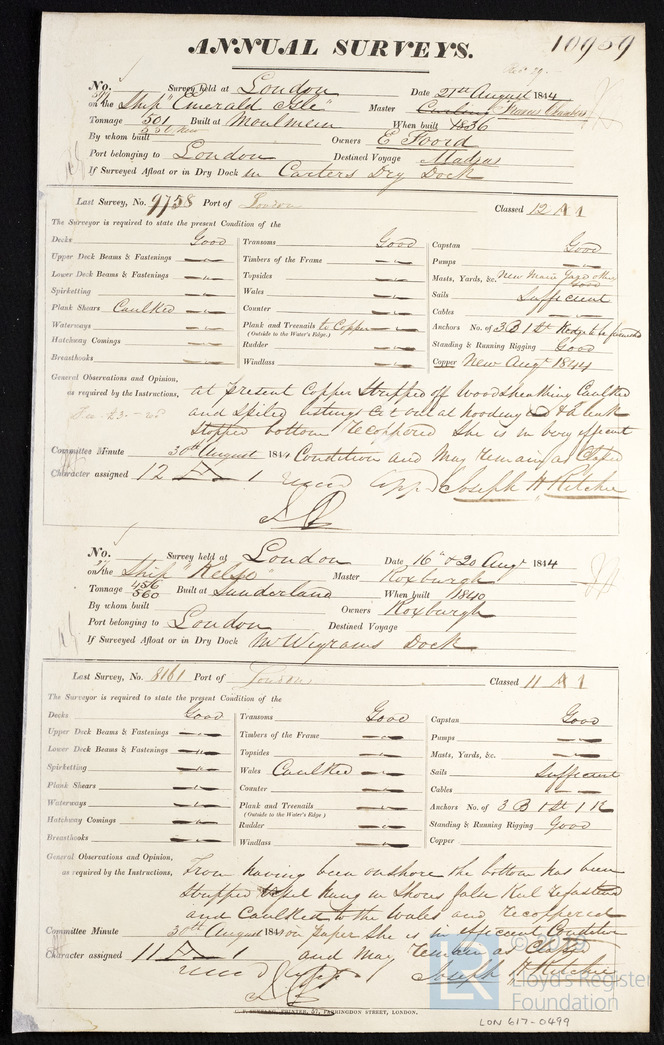 ANNUAL SURVEYS.
10959
No. Survey held at London Date 21st August 1844
on the Ship "Emerald Isle" Master Curling
Tonnage 501 Built at Moulmein When built 1836
By whom built Owners E Foord
Port belonging to London Destined Voyage Madras
If Surveyed Afloat or in Dry Dock in Carters Dry Dock
Last Survey, No. 9758 Port of London Classed 12 A 1
The Surveyor is required to state the present Condition of the
Decks Good
Upper Deck Beams & Fastenings "
Lower Deck Beams & Fastenings "
Spirketting "
Plank Shears Caulked "
Waterways "
Hatchway Comings "
Breasthooks "
Transoms Good
Timbers of the Frame "
Topsides "
Wales "
Counter "
Plank and Treenails to Copper "
(Outside to the Water's Edge)
Rudder "
Windlass "
Capstan Good
Pumps "
Masts, Yards, &c. New Main Yard other
Good
Sails Sufficient
Cables "
Anchors No. of 3 B 1 St Kedge to be furnished
Standing & Running Rigging Good
Copper New Augt 1844
General Observations and Opinion, at present Copper Stripped off Wood Sheathing Caulked
as required by the Instructions, and
bottom recoppered She is in very efficient
Committee Minute 30th August 1844 Condition and May remain as Classed
Character assigned 12 A 1 Joseph H Ritchie
No. Survey held at London Date 16th & 20 Augt 1844
on the Ship "Kelso" Master Roxburgh
Tonnage 560 Built at Sunderland When built 1840
By whom built Owners Roxburgh
Port belonging to London Destined Voyage
If Surveyed Afloat or in Dry Dock Mr Wigrams Dock
Last Survey, No. 8161 Port of London Classed 11 A 1
The Surveyor is required to state the present Condition of the
Decks Good
Upper Deck Beams & Fastenings "
Lower Deck Beams & Fastenings "
Spirketting "
Plank Shears "
Waterways "
Hatchway Comings "
Breasthooks "
Transoms Good
Timbers of the Frame "
Topsides "
Wales Caulked "
Counter "
Plank and Treenails "
(Outside to the Water's Edge)
Rudder "
Windlass "
Capstan Good
Pumps "
Masts, Yards, &c. "
Sails Sufficient
Cables "
Anchors No. of 3 B 1 St 1 K
Standing & Running Rigging Good
Copper
General Observations and Opinion, From having been onshore the bottom has been
as required by the Instructions, Stripped Vessel hung in Shores false Keel
and Caulked to the Wales and recoppered
Committee Minute 30th August 1844 on paper She is in efficient Condition
Character assigned 11 A 1 and May remain as Classed
Joseph H Ritchie
Lloyd's Register
Foundation
PRINTER, FARRINGDON STREET, LONDON.
LON 617-0499